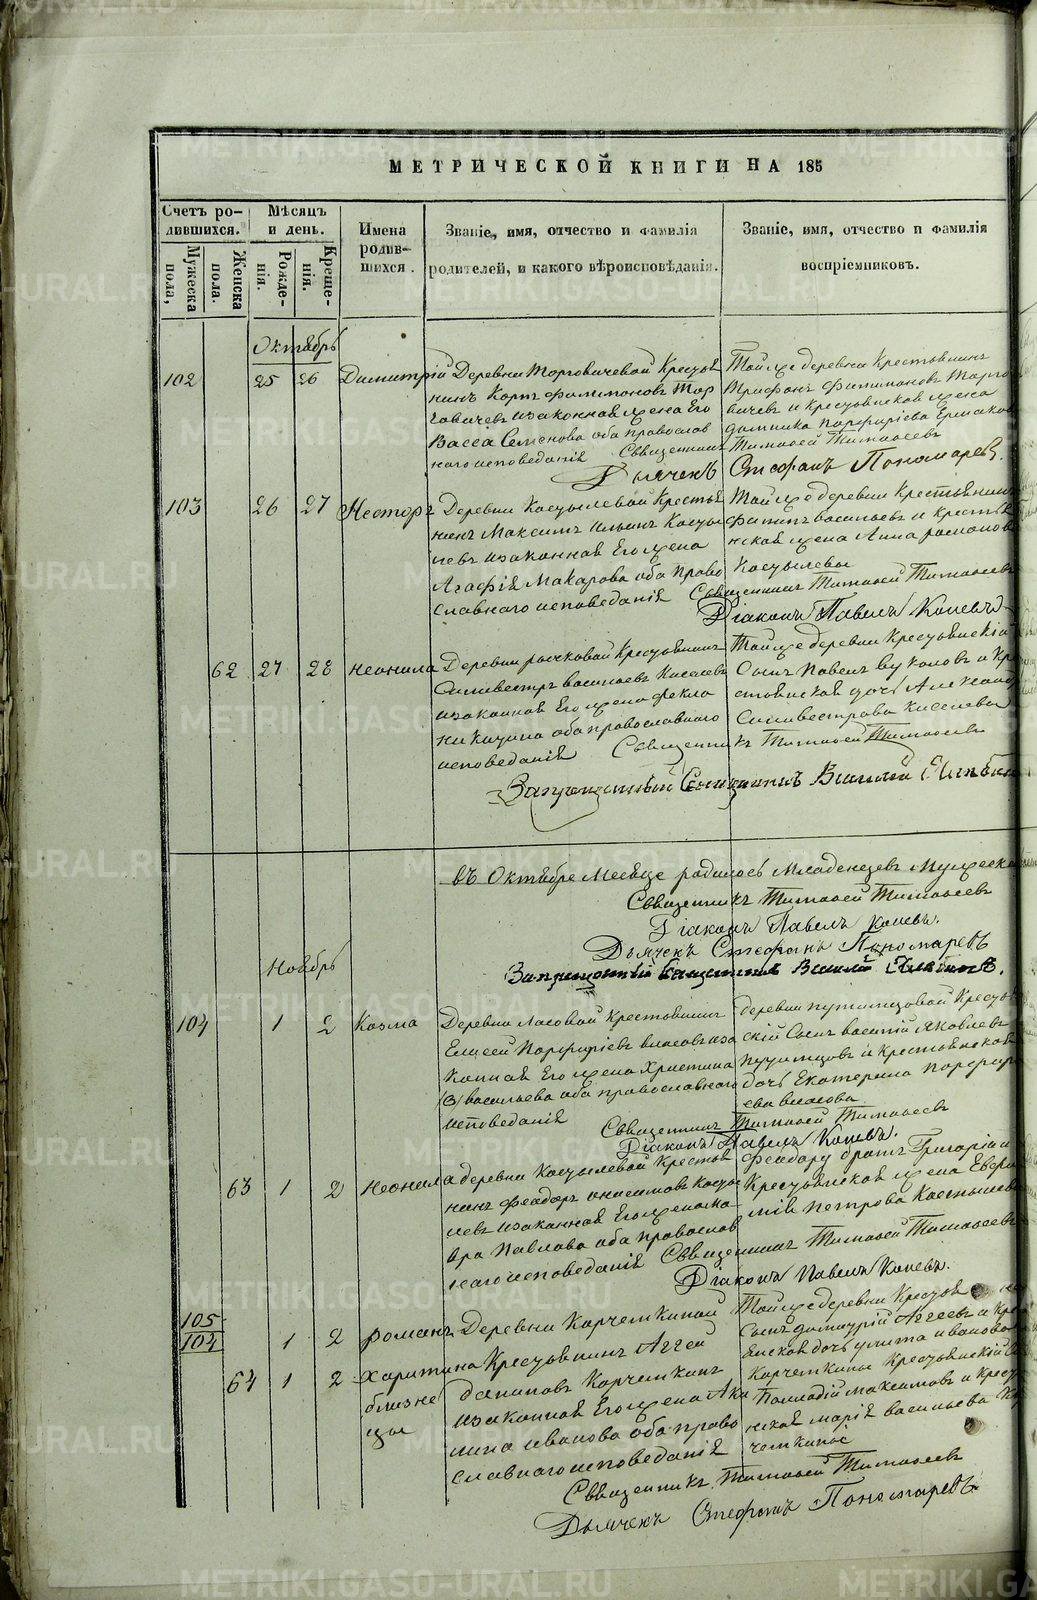 МЕТРИЧЕСКОЙ КНИГИ НА 185
Счетъ ро-
дившихся.
Мужеска
пола,
Женска
пола.
Мѣсяцъ
и день.
Рожде-
нія.
Креще-
нія.
Имена
родив-
шихся.
Званіе, имя, отчество и фамилія
родителей, и какого вѣроисповѣданія.
Званіе, имя, отчество и фамилія
воспріемниковъ.
Октябрь
102 25 26 Димитрій
Деревни Торговичевой Крестья
нинъ Карпъ Филимоновъ Тор
говичевъ изаконная жена Его
Васса Семенова оба православ
наго исповеданія
Тойже деревни Крестьянинъ
Трифонъ Филимоновъ Торго
вичевъ и крестьянская жена
Домника Порфирiева
Священникъ Тимофей Тимофеевъ
Дьячекъ Стефанъ Пономаревъ.
103 26 27 Несторъ
Деревни Костылевой Крестья
нинъ Максимъ Ильинъ Косты
левъ изаконная Его жена
Агафія Макарова оба право
славнаго исповеданія
Тойже деревни Крестьянинъ
Филипъ васильевъ и крестья
нская жена Анна романова
Костылевы
Священникъ Тимофей Тимофеевъ
Діаконъ Павелъ Коневъ
62 27 28 неонила
Деревни рычковой Крестьянинъ
Силивестръ васильевъ Киселевъ
изаконная Его жена фекла
никитина оба православнаго
исповеданія
Тойже деревни Крестьянскій
Сынъ Павелъ вуколовъ и Кре
стьянская дочь Александ
Силивестрова Киселевы
Священникъ Тимофей Тимофеевъ
Запрещенный Священникъ Василій
въ Октябре Месяце родилось Младенцевъ Мужеска
Священникъ Тимофей Тимофеевъ
Діаконъ Павелъ Коневъ.
Дьячекъ Стефанъ Пономаревъ
Запрещенный Священникъ Василій
Ноябрь
104 1 2 Козма
Деревни Ласовой Крестьянинъ
Елисей Порфиріевъ власовъ иза
конная Его жена Христина
васильева оба православнаго
исповеданія
деревни путимцовой Крестья
скій Сынъ василій Яковлевъ
Путимцовъ и крестьянская
дочь Екатерина Порфир
ева власова
Священникъ Тимофей Тимофеевъ
Діаконъ Павелъ Коневъ.
63 1 2 Неонила
деревни Костылевой Крестья
нинъ феодоръ анисимовъ Косты
левъ изаконная Его жена ма
вра Павлова оба православ
наго исповеданія
Феодору братъ Григорій и
Крестьянская жена Евфи
мія Петрова Костылева
Священникъ Тимофей Тимофеевъ
Діаконъ Павелъ Коневъ.
105
104 1 2 романъ
64 1 2 Харитина
близне
цы
Деревни Корчемкиной
Крестьянинъ Аггей
даниловъ Корчемкинъ
изаконная Его жена Аки
лина иванова оба право
славнаго исповеданія
Тойже деревни Крестья
Сынъ димитрій Аггеевъ и кре
янская дочь улита иванова
Корчемкины Крестьянскій
Палладій максимовъ и крестья
нская марія васильева Кор
чемкины
Священникъ Тимофей Тимофеевъ
Дьячекъ Стефанъ Пономаревъ
METRIKI.GASO-URAL.RU